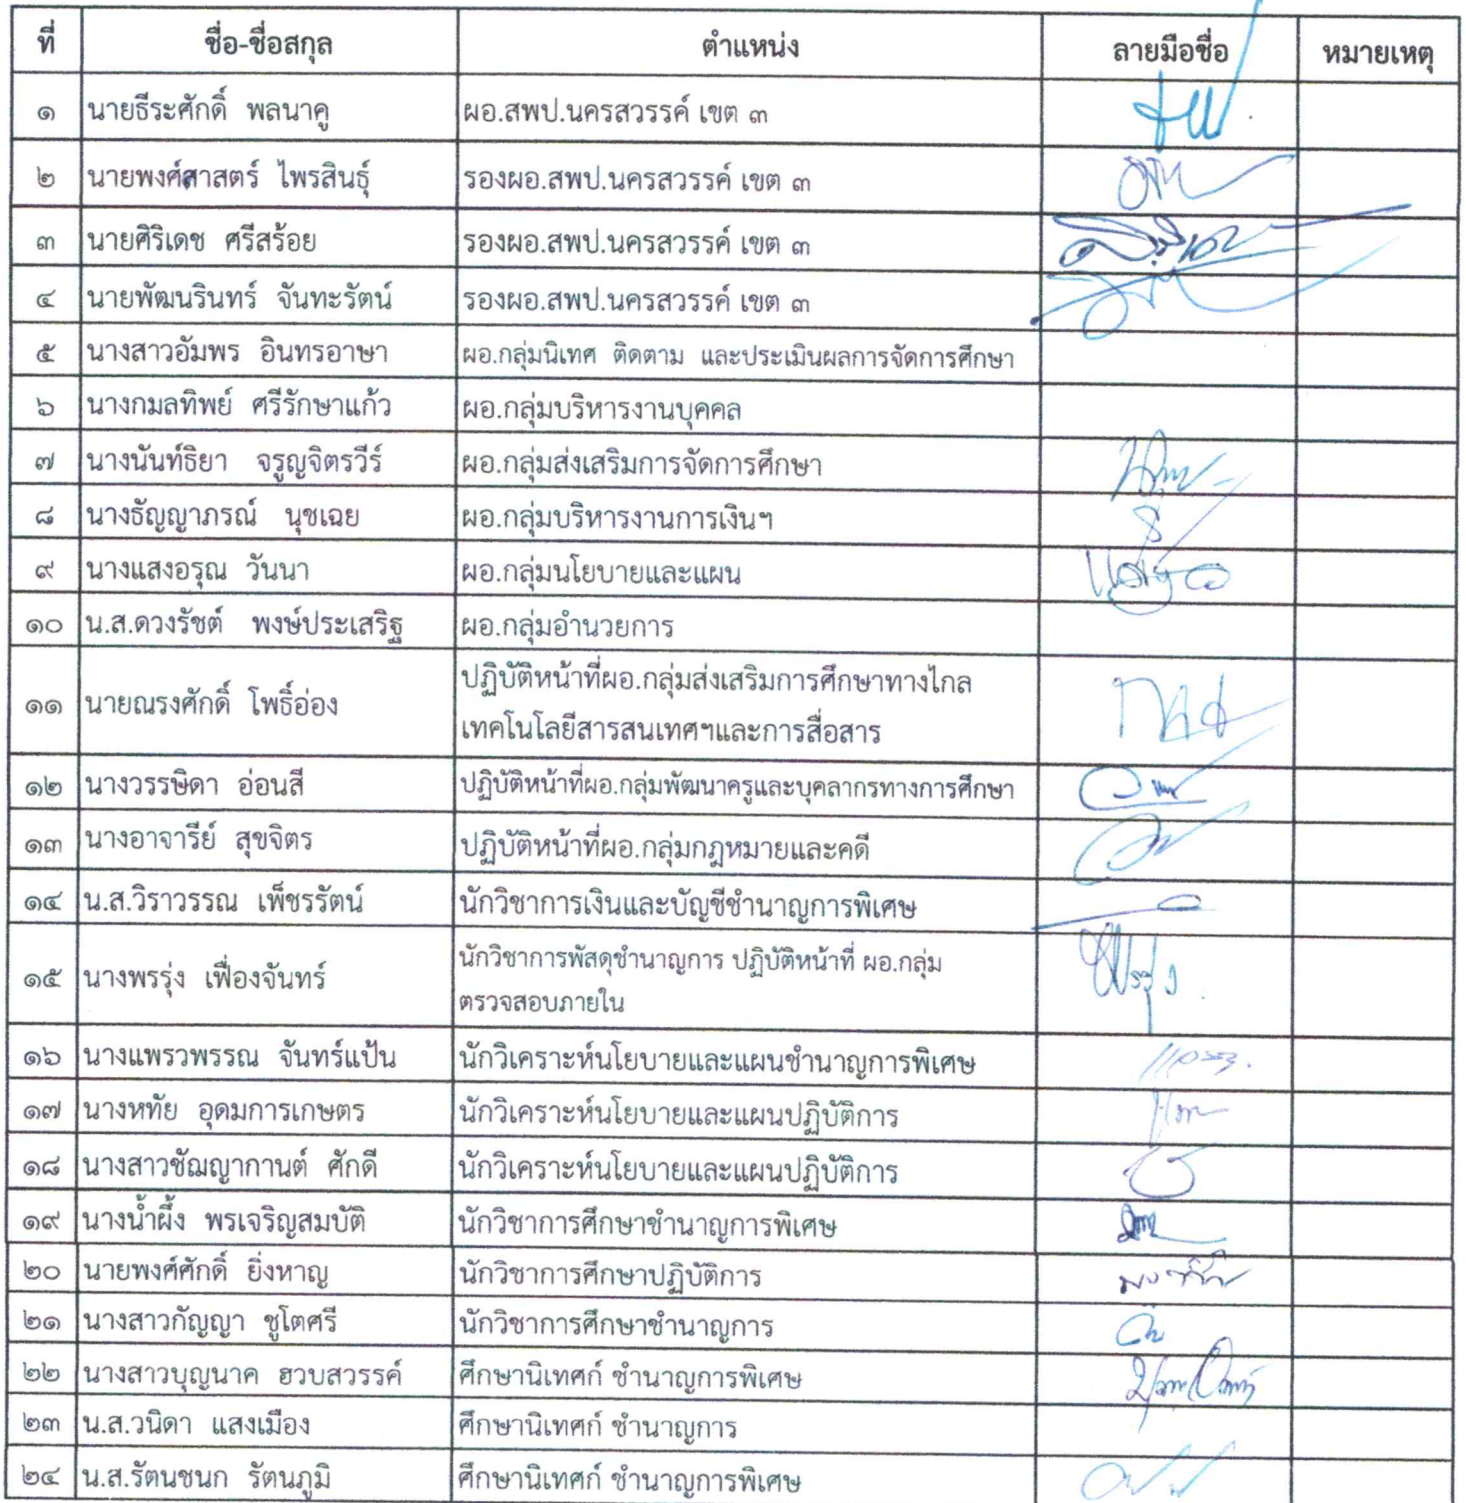 ที่ ชื่อ-ชื่อสกุล ตำแหน่ง ลายมือชื่อ หมายเหตุ
๑ นายธีระศักดิ์ พลนาคู ผอ.สพป.นครสวรรค์ เขต ๓
๒ นายพงศ์ศาสตร์ ไพรสินธุ์ รองผอ.สพป.นครสวรรค์ เขต ๓
๓ นายศิริเดช ศรีสร้อย รองผอ.สพป.นครสวรรค์ เขต ๓
๔ นายพัฒนรินทร์ จันทะรัตน์ รองผอ.สพป.นครสวรรค์ เขต ๓
๕ นางสาวอัมพร อินทรอาษา ผอ.กลุ่มนิเทศ ติดตาม และประเมินผลการจัดการศึกษา
๖ นางกมลทิพย์ ศรีรักษาแก้ว ผอ.กลุ่มบริหารงานบุคคล
๗ นางนันท์ธิยา จรูญจิตรวีร์ ผอ.กลุ่มส่งเสริมการจัดการศึกษา
๘ นางธัญญาภรณ์ นุชเฉย ผอ.กลุ่มบริหารงานการเงินฯ
๙ นางแสงอรุณ วันนา ผอ.กลุ่มนโยบายและแผน
๑๐ น.ส.ดวงรัชต์ พงษ์ประเสริฐ ผอ.กลุ่มอำนวยการ
๑๑ นายณรงศักดิ์ โพธิ์อ่อง ปฏิบัติหน้าที่ผอ.กลุ่มส่งเสริมการศึกษาทางไกล
เทคโนโลยีสารสนเทศฯและการสื่อสาร
๑๒ นางวรรษิดา อ่อนสี ปฏิบัติหน้าที่ผอ.กลุ่มพัฒนาครูและบุคลากรทางการศึกษา
๑๓ นางอาจารีย์ สุขจิตร ปฏิบัติหน้าที่ผอ.กลุ่มกฎหมายและคดี
๑๔ น.ส.วิราวรรณ เพ็ชรรัตน์ นักวิชาการเงินและบัญชีชำนาญการพิเศษ
๑๕ นางพรรุ่ง เฟื่องจันทร์ นักวิชาการพัสดุชำนาญการ ปฏิบัติหน้าที่ ผอ.กลุ่ม
ตรวจสอบภายใน
๑๖ นางแพรวพรรณ จันทร์แป้น นักวิเคราะห์นโยบายและแผนชำนาญการพิเศษ
๑๗ นางหทัย อุดมการเกษตร นักวิเคราะห์นโยบายและแผนปฏิบัติการ
๑๘ นางสาวชัฌญากานต์ ศักดี นักวิเคราะห์นโยบายและแผนปฏิบัติการ
๑๙ นางน้ำผึ้ง พรเจริญสมบัติ นักวิชาการศึกษาชำนาญการพิเศษ
๒๐ นายพงศ์ศักดิ์ ยิ่งหาญ นักวิชาการศึกษาปฏิบัติการ
๒๑ นางสาวกัญญา ชูโตศรี นักวิชาการศึกษาชำนาญการ
๒๒ นางสาวบุญนาค ฮวบสวรรค์ ศึกษานิเทศก์ ชำนาญการพิเศษ
๒๓ น.ส.วนิดา แสงเมือง ศึกษานิเทศก์ ชำนาญการ
๒๔ น.ส.รัตนชนก รัตนภูมิ ศึกษานิเทศก์ ชำนาญการพิเศษ